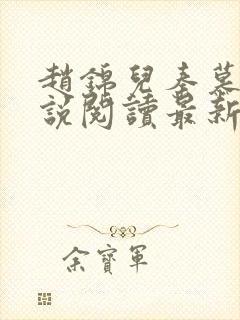 趙錦兒秦慕
說閱讀最新
余寶軍